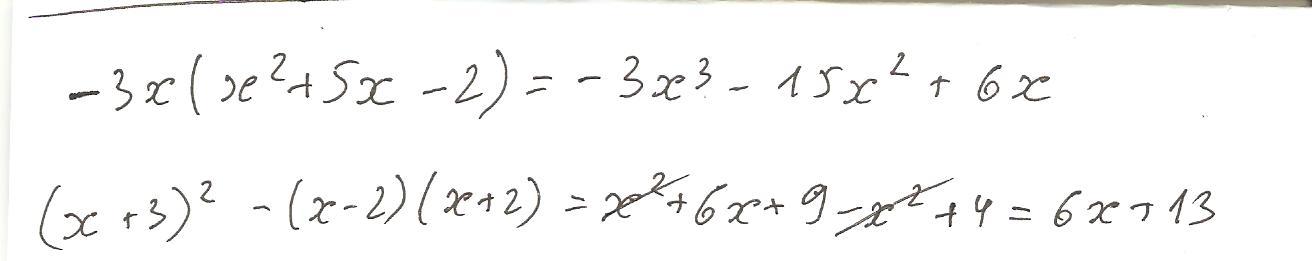 -3x(x²+5x-2) = -3x³ - 15x² + 6x
(x+3)² - (x-2)(x+2) = x²+6x+9-x²+4 = 6x+13